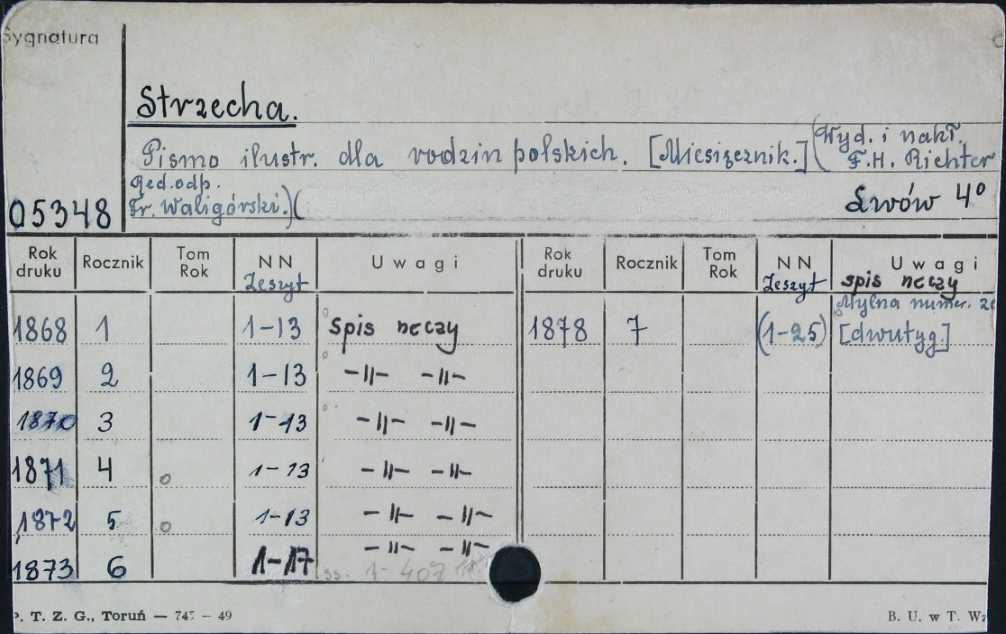 Sygnatura
Strzecha.
Pismo ilustr. dla rodzin polskich. [Miesięcznik.] (Wyd. i nakł.
F.H. Richter
Red. odp.
Fr. Waligórski.) (
05348
Lwów 4°
Rok druku Rocznik Tom Rok NN Zeszyt Uwagi Rok druku Rocznik Tom Rok NN Zeszyt Uwagi
spis rzeczy
Mylna numer.
1868 1 1-13 spis rzeczy 1878 7 (1-25) [dwutyg.]
1869 2 1-13 -||- -||-
1870 3 1-13 -||- -||-
1871 4 1-13 -||- -||-
1872 5 1-13 -||- -||-
1873 6 1-17 -||- -||-
ss. 1-407
P. T. Z. G., Toruń — 745 – 49 B. U. w T. Wz